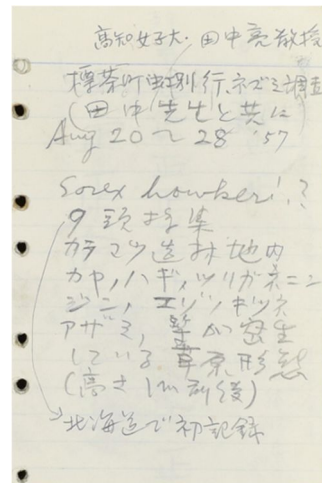 高知女子大・田中亮教授
標茶町虫別行、ネズミ調査
(田中先生と共に
Aug 20〜28 '57
Sorex hawkeri!?
9頭採集
カラマツ造林地内
カヤ,ハギ,ツリガネニン
ジン,エゾノギツネ
アザミ,等が密生
している草原形態
(高さ1m前後)
北海道で初記録